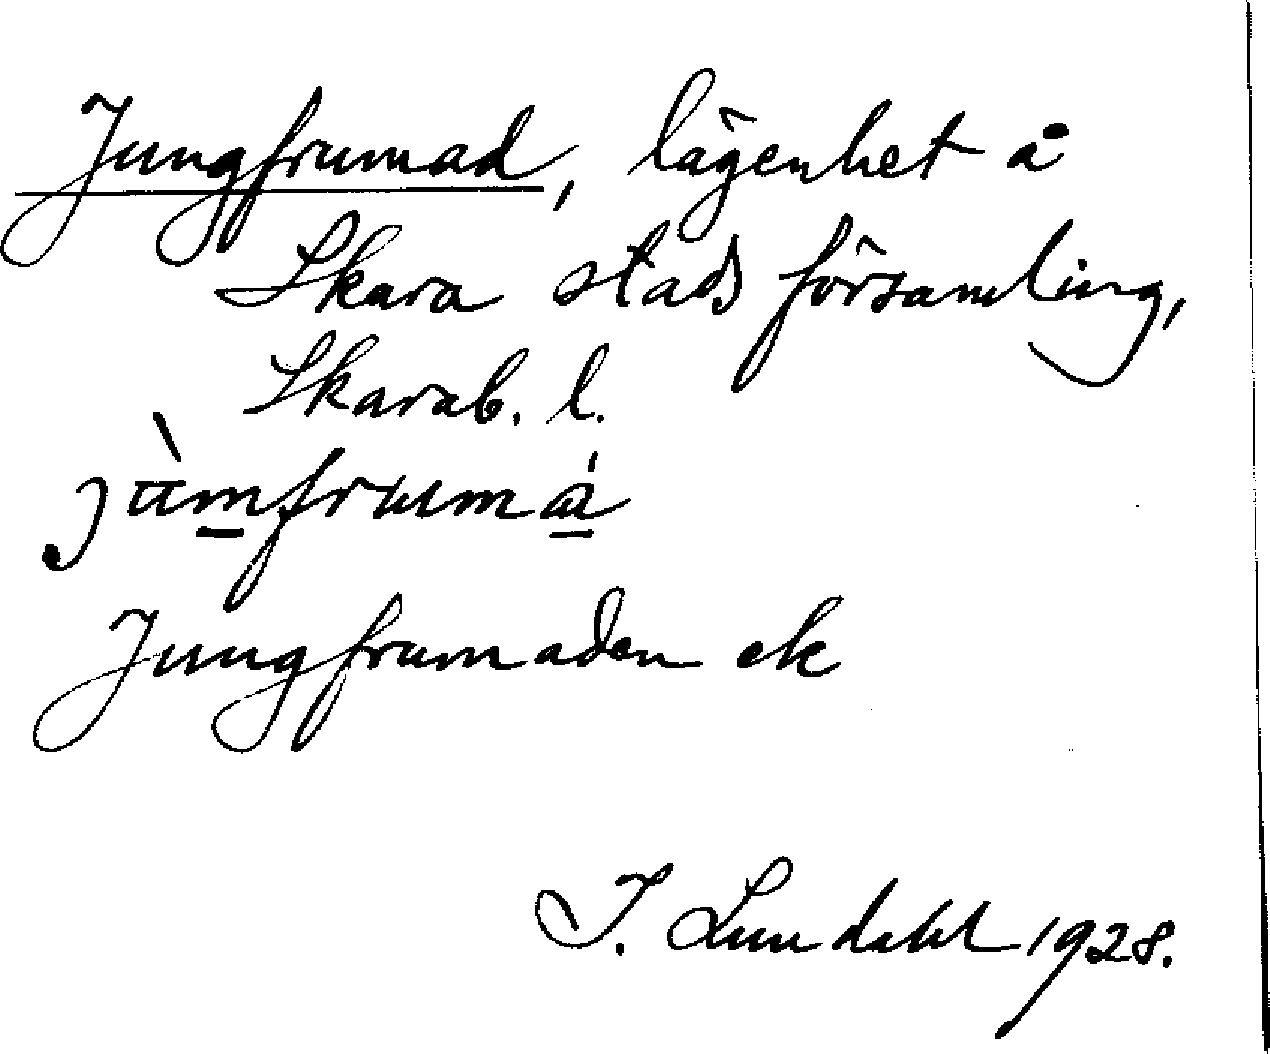 Jungfrumad, lägenhet å
Skara stads församling,
Skarab. l.
Jungfrumaden ek
I. Lundahl 1928.